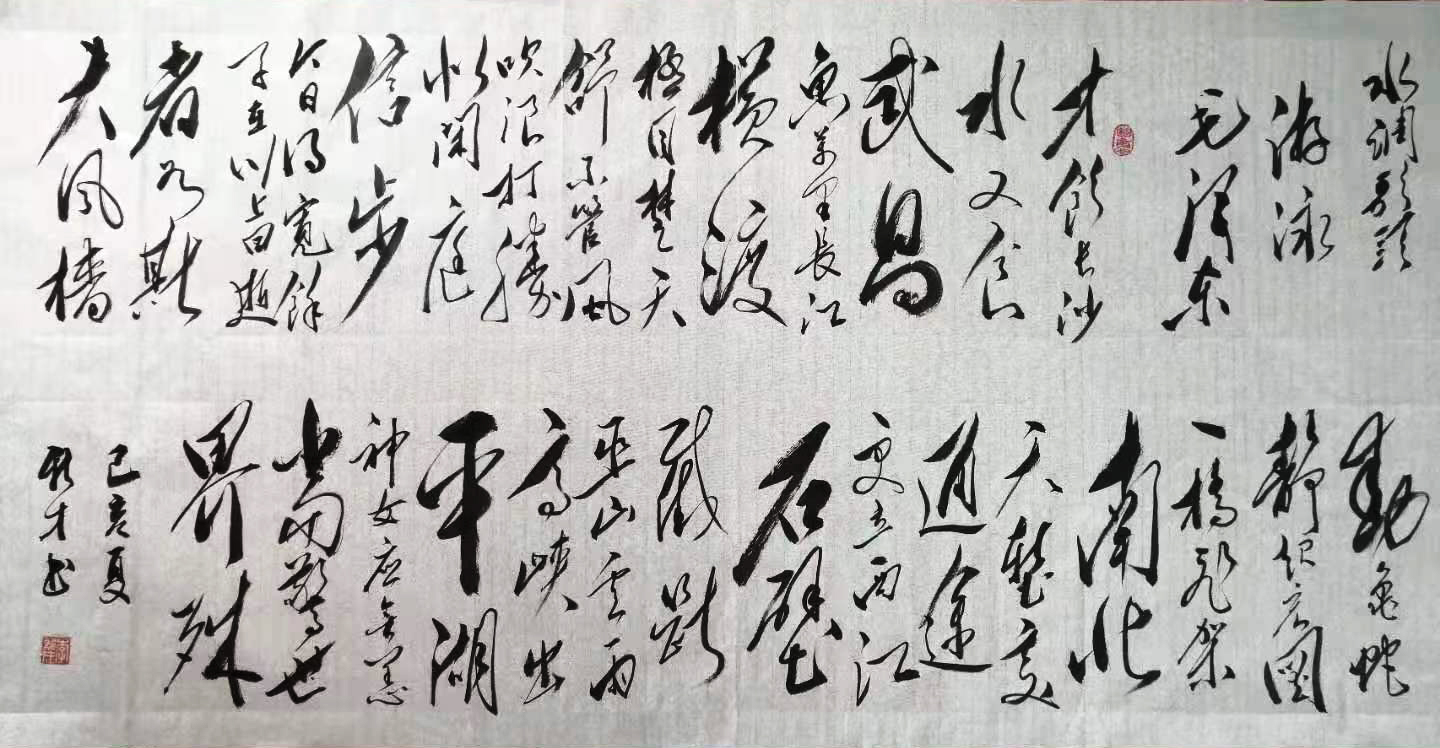 水调歌头
游泳
毛泽东
才饮长沙
水又食
武昌
鱼万里长江
横渡
极目楚天
舒不管风
吹浪打勝
似闲庭
信步
今日得寬餘
子在川上曰逝
者如斯
夫风樯
动龟蛇
靜起宏図
一桥飞架
南北
天堑变
通途
更立西江
石壁
截断
巫山云雨
高峡出
平湖
神女应无恙
当惊世
界殊
己亥夏
才书